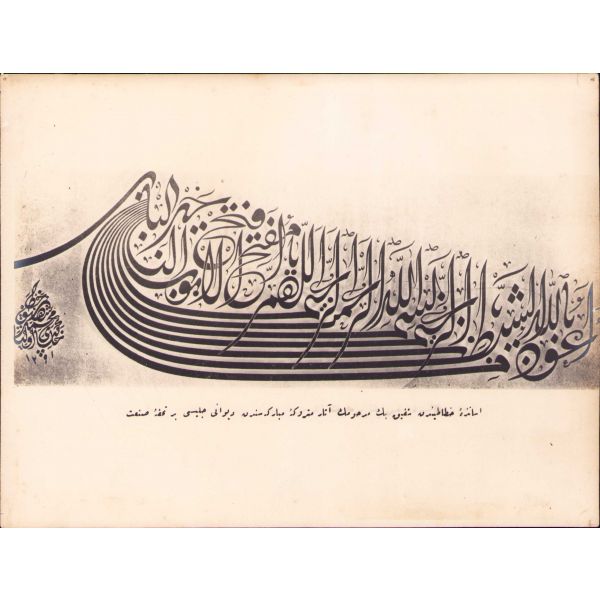 أعوذ بالله من الشيطان الرجيم بسم الله الرحمن الرحيم اللهم يا مفتح الأبواب افتح لنا خير الباب
١٢٩١
اساتذۀ خطاطیندن شفیق بك مرحومك آثار متروكۀ مباركه سندن دیوانی جلیسی بر تحفۀ صنعت